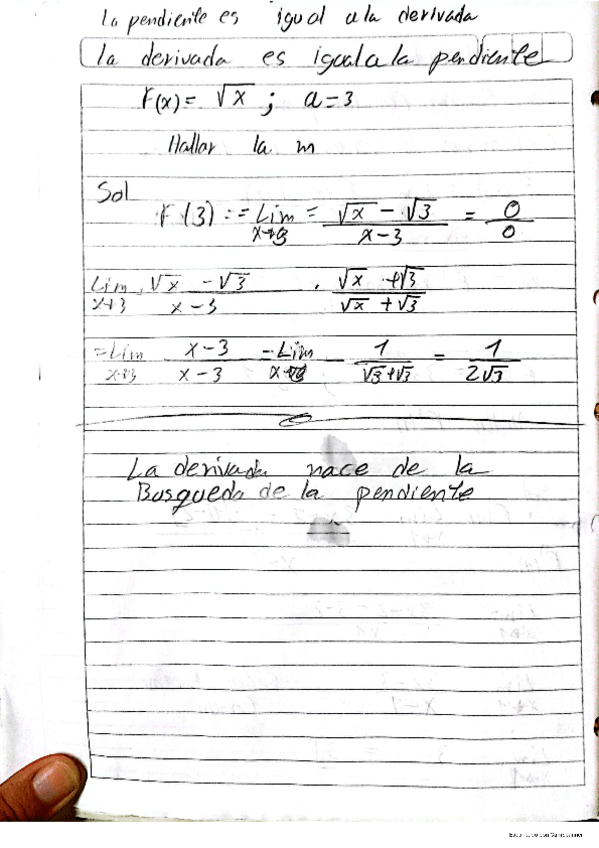 la pendiente es igual a la derivada
la derivada es igual a la pendiente
F(x) = √x ; a = 3
Hallar la m
Sol
F(3) := Lim x→3 = (√x - √3)/(x - 3) = 0/0
Lim x→3 (√x - √3)/(x - 3) . (√x + √3)/(√x + √3)
= Lim x→3 (x - 3)/(x - 3) = Lim x→3 1/(√3 + √3) = 1/(2√3)
La derivada nace de la
Busqueda de la pendiente